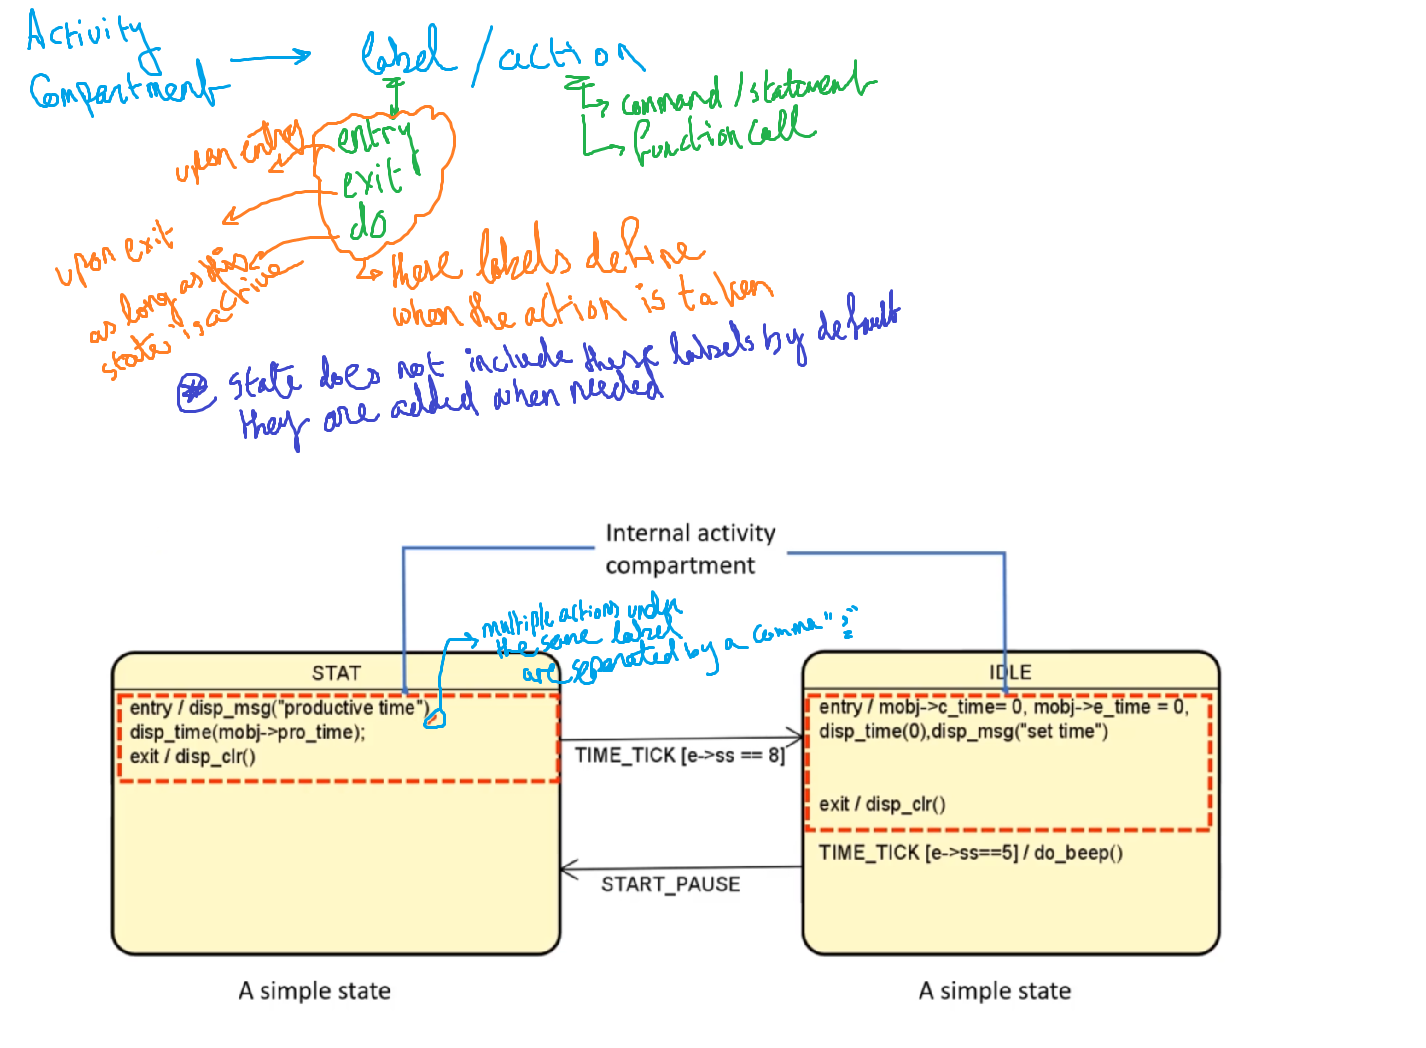 Activity
Compartment
label / action
command / statement
function call
entry
exit
do
upon entry
upon exit
as long as this
state is active
these labels define
when the action is taken
* state does not include these labels by default
they are added when needed
Internal activity
compartment
multiple actions under
the same label
are seperated by a comma ","
STAT
entry / disp_msg("productive time"),
disp_time(mobj->pro_time);
exit / disp_clr()
TIME_TICK [e->ss == 8]
START_PAUSE
IDLE
entry / mobj->c_time= 0, mobj->e_time = 0,
disp_time(0),disp_msg("set time")
exit / disp_clr()
TIME_TICK [e->ss==5] / do_beep()
A simple state
A simple state